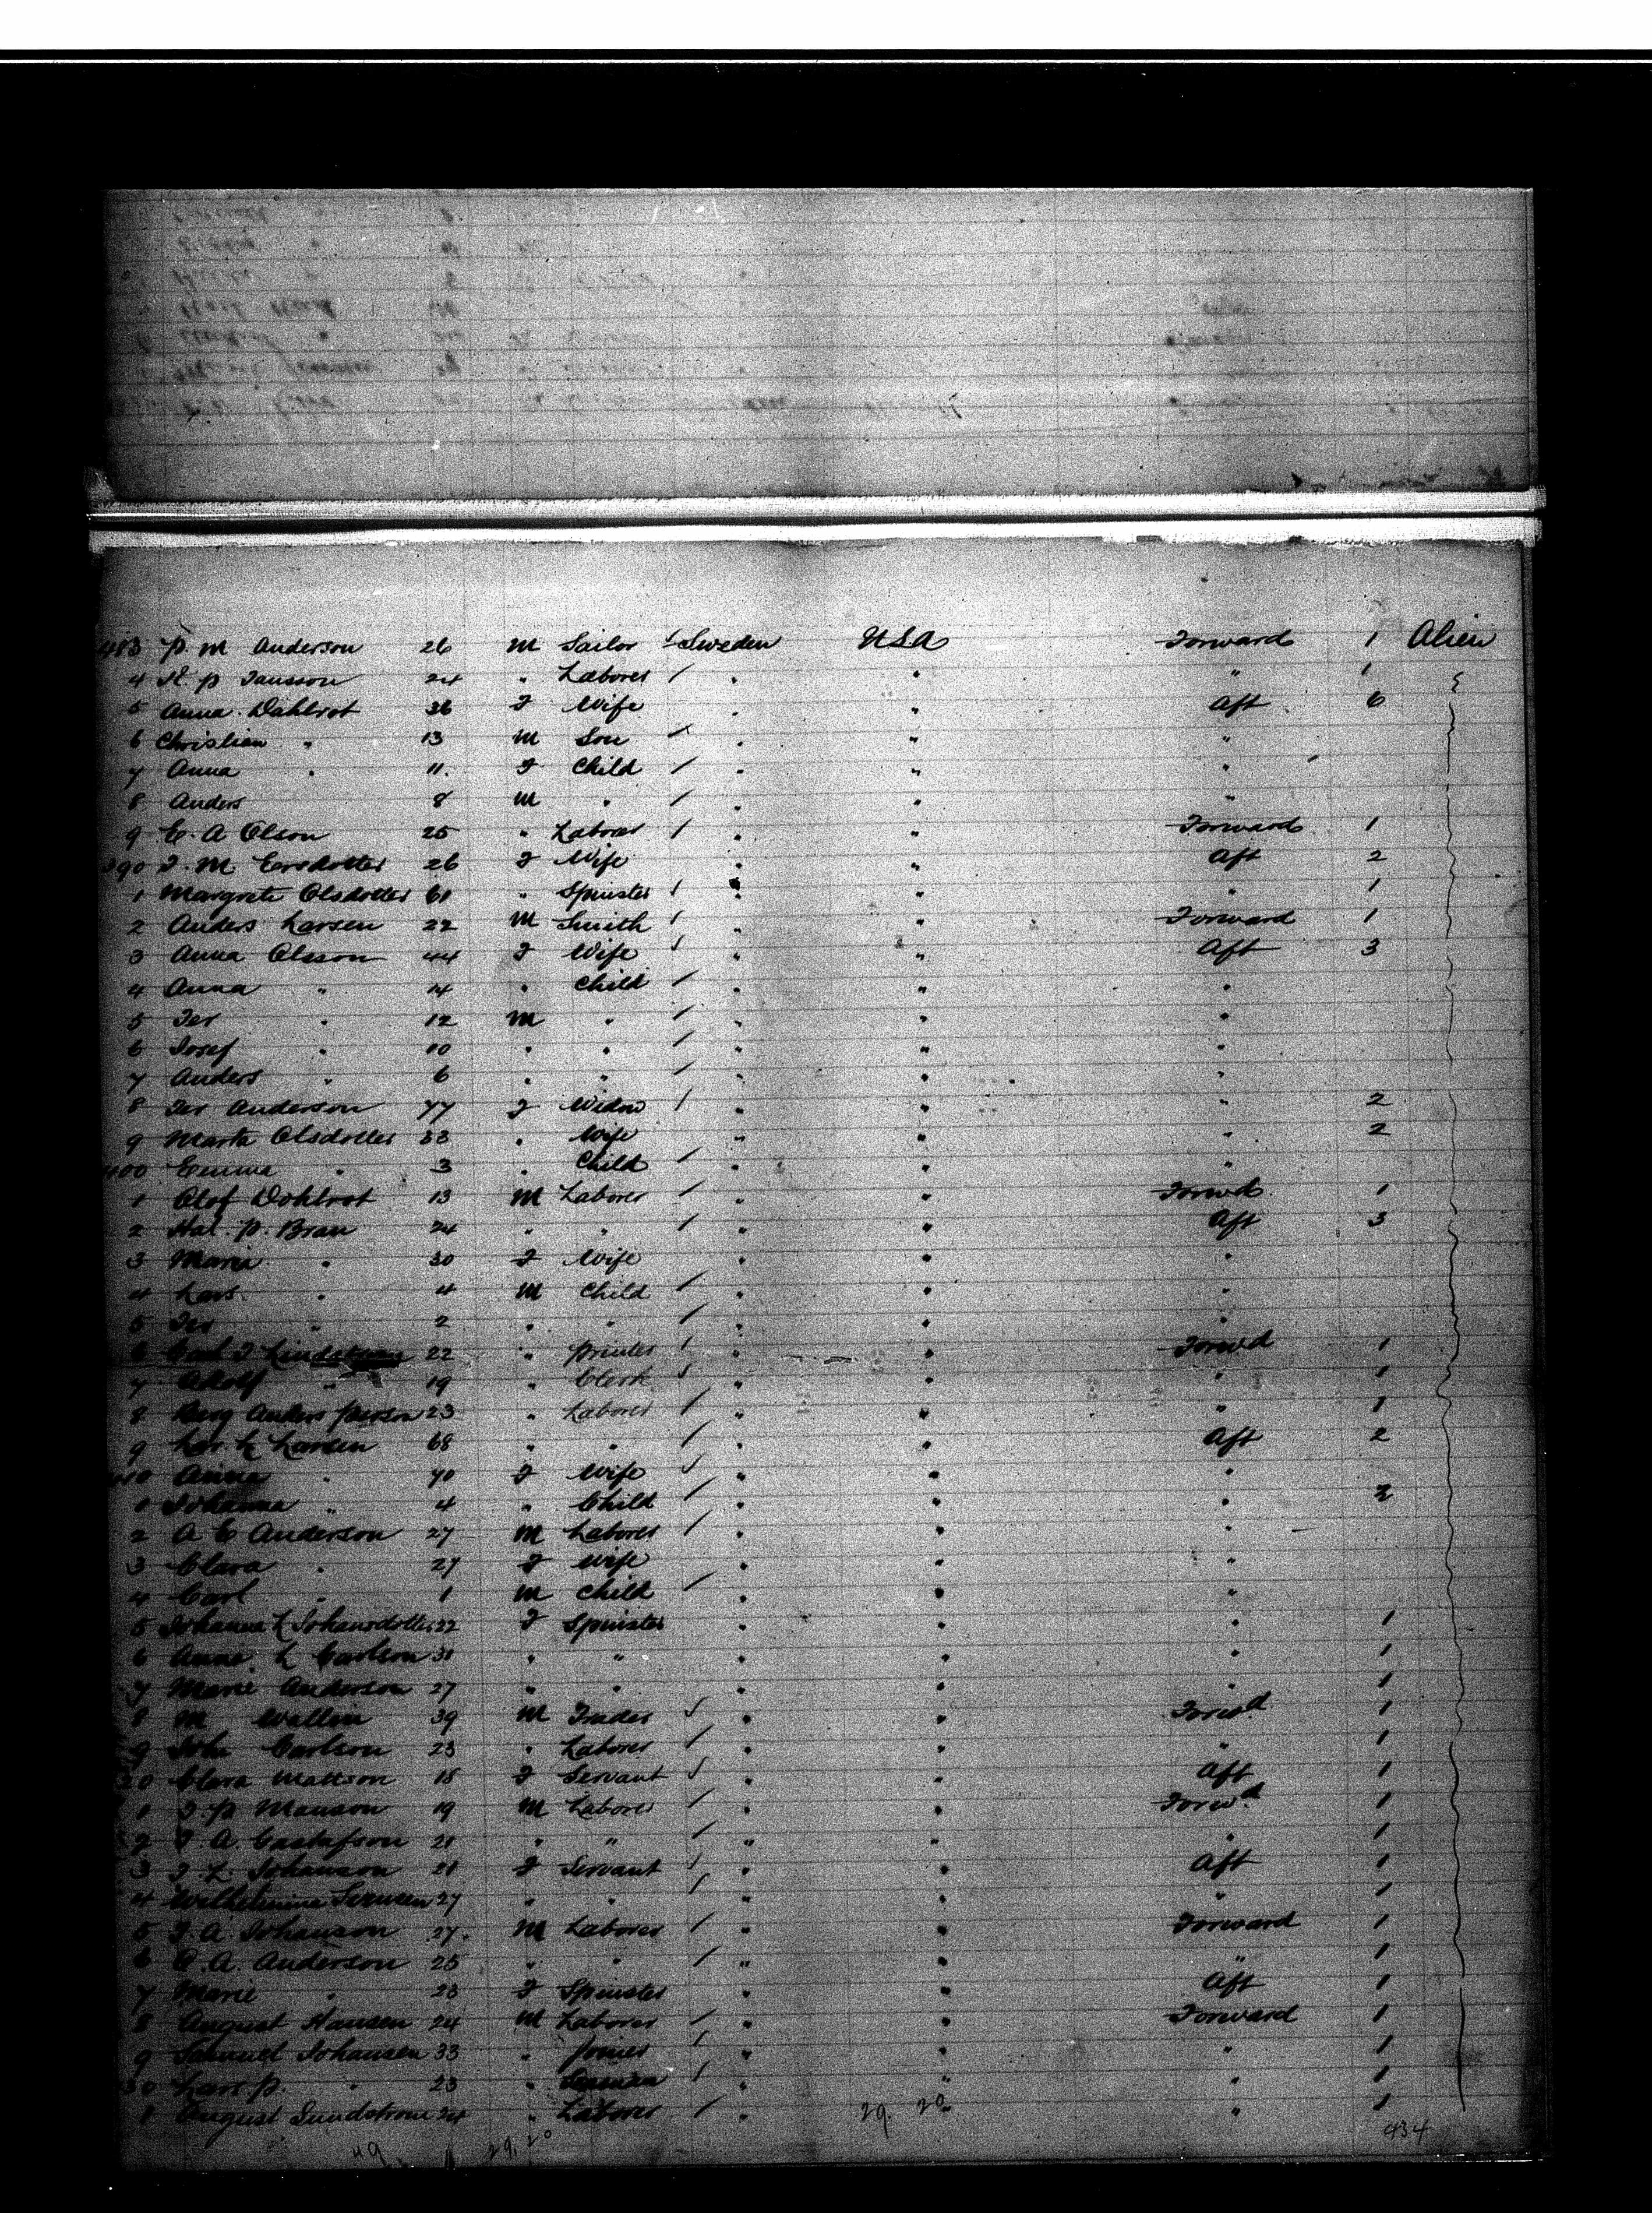 483 P. M Anderson 26 M Sailor Sweden USA Forward 1 Alien
4 P Jansson 24 " Laborer / " " " 1
5 Anna Dahlrot 36 F Wife " " Aft 6
6 Christian " 13 M Son / " " "
7 Anna " 11 F Child / " " "
8 Anders 8 M " / " " "
9 E. A Olson 25 " Laborer / " " Forward 1
390 J. M. Ersdotter 26 F Wife " " Aft 2
1 Margrete Olsdotter 61 " Spinster / " " " 1
2 Anders Larsen 22 M Smith / " " Forward 1
3 Anna Olsson 44 F Wife / " " Aft 3
4 Anna " 14 " Child / " " "
5 Per " 12 M " / " " "
6 Josef " 10 " " / " " "
7 Anders " 6 " " / " " "
8 Per Anderson 77 F Widow / " " " 2
9 Marta Olsdotter 33 " Wife " " " 2
400 Emma " 3 " Child / " " "
1 Olof Dohlrot 13 M Laborer / " " Forwd 1
2 P. Bran 24 " " / " " Aft 3
3 Marie " 30 F Wife " " "
4 Lars " 4 M Child / " " "
5 Per " 2 " " / " " "
6 Carl J Lindstrom 22 " Printer / " " Forwd 1
7 Adolf " 19 " Clerk / " " " 1
8 Berg Anders Person 23 " Laborer / " " " 1
9 L Larsen 68 " " / " " Aft 2
10 Anna " 70 F Wife / " " "
1 Johanna " 4 " Child / " " " 2
2 A E Anderson 27 M Laborer / " " "
3 Clara " 27 F Wife " " "
4 Carl " 1 M Child / " " "
5 Johanna L Johansdotter 22 F Spinster " " " 1
6 Anna L Carlson 31 " " " " " 1
7 Marie Anderson 27 " " " " " 1
8 M Wallin 39 M Trader / " " Forwd 1
9 John Carlson 23 " Laborer / " " " 1
20 Clara Mattson 18 F Servant / " " Aft 1
1 J. P Manson 19 M Laborer / " " Forwd 1
2 J. A. Gustafson 21 " " / " " " 1
3 J. L. Johanson 21 F Servant / " " Aft 1
4 Wilhelmine 27 " " / " " " 1
5 J. A Johanson 27 M Laborer / " " Forward 1
6 A. Anderson 25 " " / " " " 1
7 Marie " 23 F Spinster " " Aft 1
8 August Hansen 24 M Laborer / " " Forward 1
9 Samuel Johansen 33 " Joiner / " " " 1
30 Lars P. " 23 " / " " " 1
1 August Sundstrom 24 " Laborer / " " 1
29. 20
49 29. 20 434